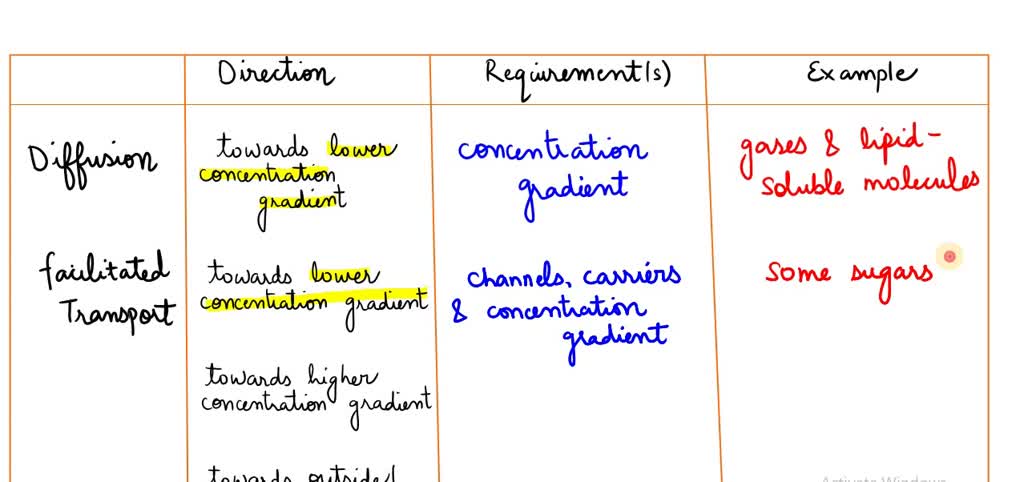 Direction
Requirement(s)
Example
Diffusion
towards lower
concentration
gradient
concentration
gradient
gases & lipid-
soluble molecules
facilitated
Transport
towards lower
concentration gradient
channels, carriers
& concentration
gradient
some sugars
towards higher
concentration gradient
towards outside/
Activate Windows